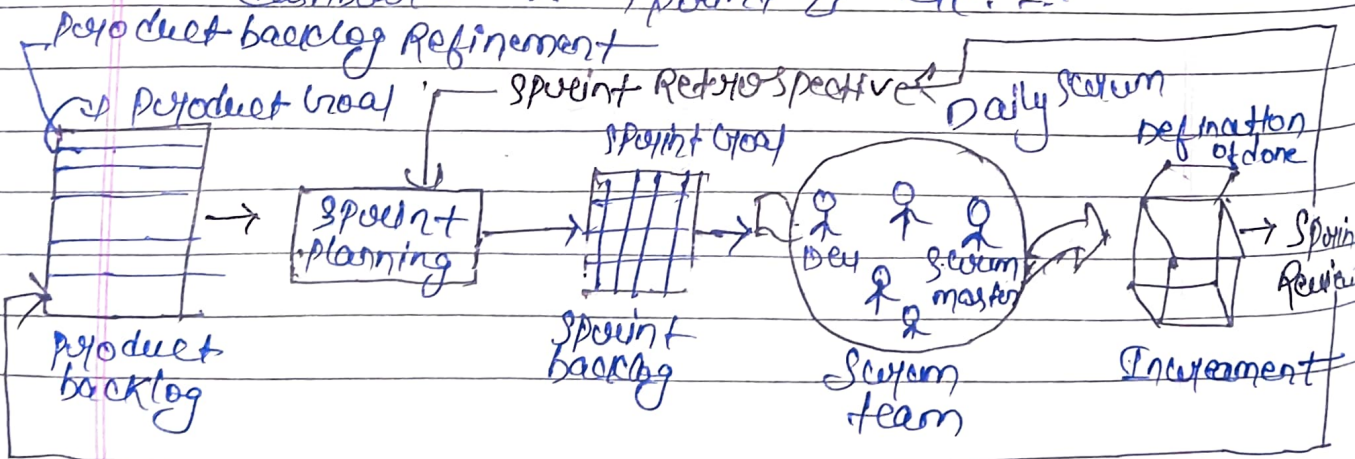 Product backlog Refinement
Product Goal
Sprint Retrospective
Daily Scrum
Sprint Goal
Defination
of done
Sprint
planning
Dev
Scrum
master
Product
backlog
Sprint
backlog
Scrum
team
Increament